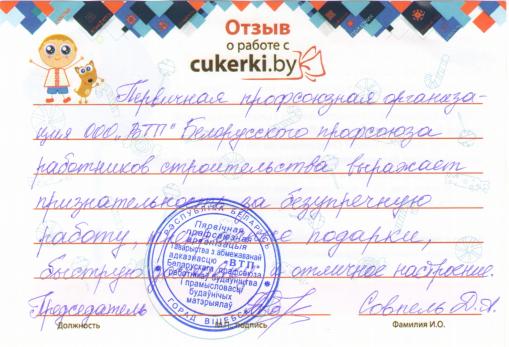 Отзыв
о работе с
cukerki.by
Первичная профсоюзная организа-
ция ООО "ВТП" Белорусского профсоюза
работников строительства выражает
признательность за безупречную
работу, подарки,
быструю и отличное настроение.
РЭСПУБЛІКА БЕЛАРУСЬ
Пярвічная
прафсаюзная
арганізацыя
таварыства з абмежаванай
адказнасцю «ВТП»
Беларускага прафсаюза
работнікаў будаўніцтва
і прамысловасці
будаўнічых
матэрыялаў
ГОРАД ВІЦЕБСК
Председатель Совпель Д.А.
Должность М.П. подпись Фамилия И.О.